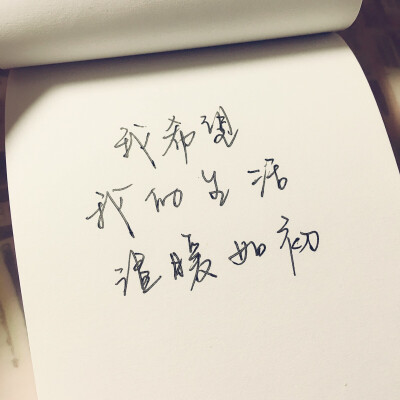 我希望
我的生活
温暖如初